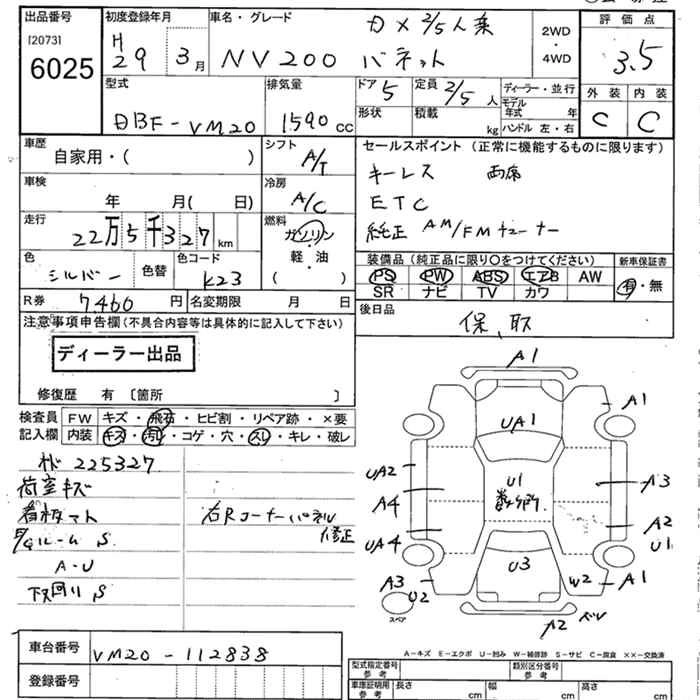 出品番号
[2073]
6025
初度登録年月
H29 3月
車名・グレード
NV200 バネット
2/5人乗
2WD
・
4WD
評価点
3.5
外装 内装
C C
型式
DBF-VM20
排気量
1590 cc
ドア 5
定員 2/5 人
形状
積載 kg
ディーラー・並行
モデル
年式 年
ハンドル 左・右
車歴
自家用・( )
シフト
A/T
セールスポイント (正常に機能するものに限ります)
キーレス 両席
ETC
純正 AM/FMチューナー
車検
年 月( 日)
冷房
A/C
走行
22万5千327km
燃料
ガソリン
・
軽・油
( )
色
シルバー
色替
色コード
K23
装備品 (純正品に限り○をつけてください)
新車保証書
PS PW ABS エアB AW
SR ナビ TV カワ
有・無
R券 7,460 円
名変期限 月 日
後日品
保、取
注意事項申告欄 (不具合内容等は具体的に記入して下さい)
ディーラー出品
修復歴 有 〔箇所 〕
検査員
記入欄
FW キズ・飛石・ヒビ割・リペア跡・×要
内装 キズ・汚レ・コゲ・穴・スレ・キレ・破レ
225327
荷室キズ
看板マト
ルーム S
A-U
下回り S
右Rコーナーパネル
修正
A1
A1
UA1
UA2
U1
数ヶ所
A4
A3
A2
UA4
U1
A3
U2
U3
W2
A1
スペア
A2
A-キズ E-エクボ U-凹み W-補修跡 S-サビ C-腐食 ××-交換済
車台番号
VM20-112838
登録番号
型式指定番号
参考
類別区分番号
参考
車庫証明用
参考
長さ cm
幅 cm
高さ cm